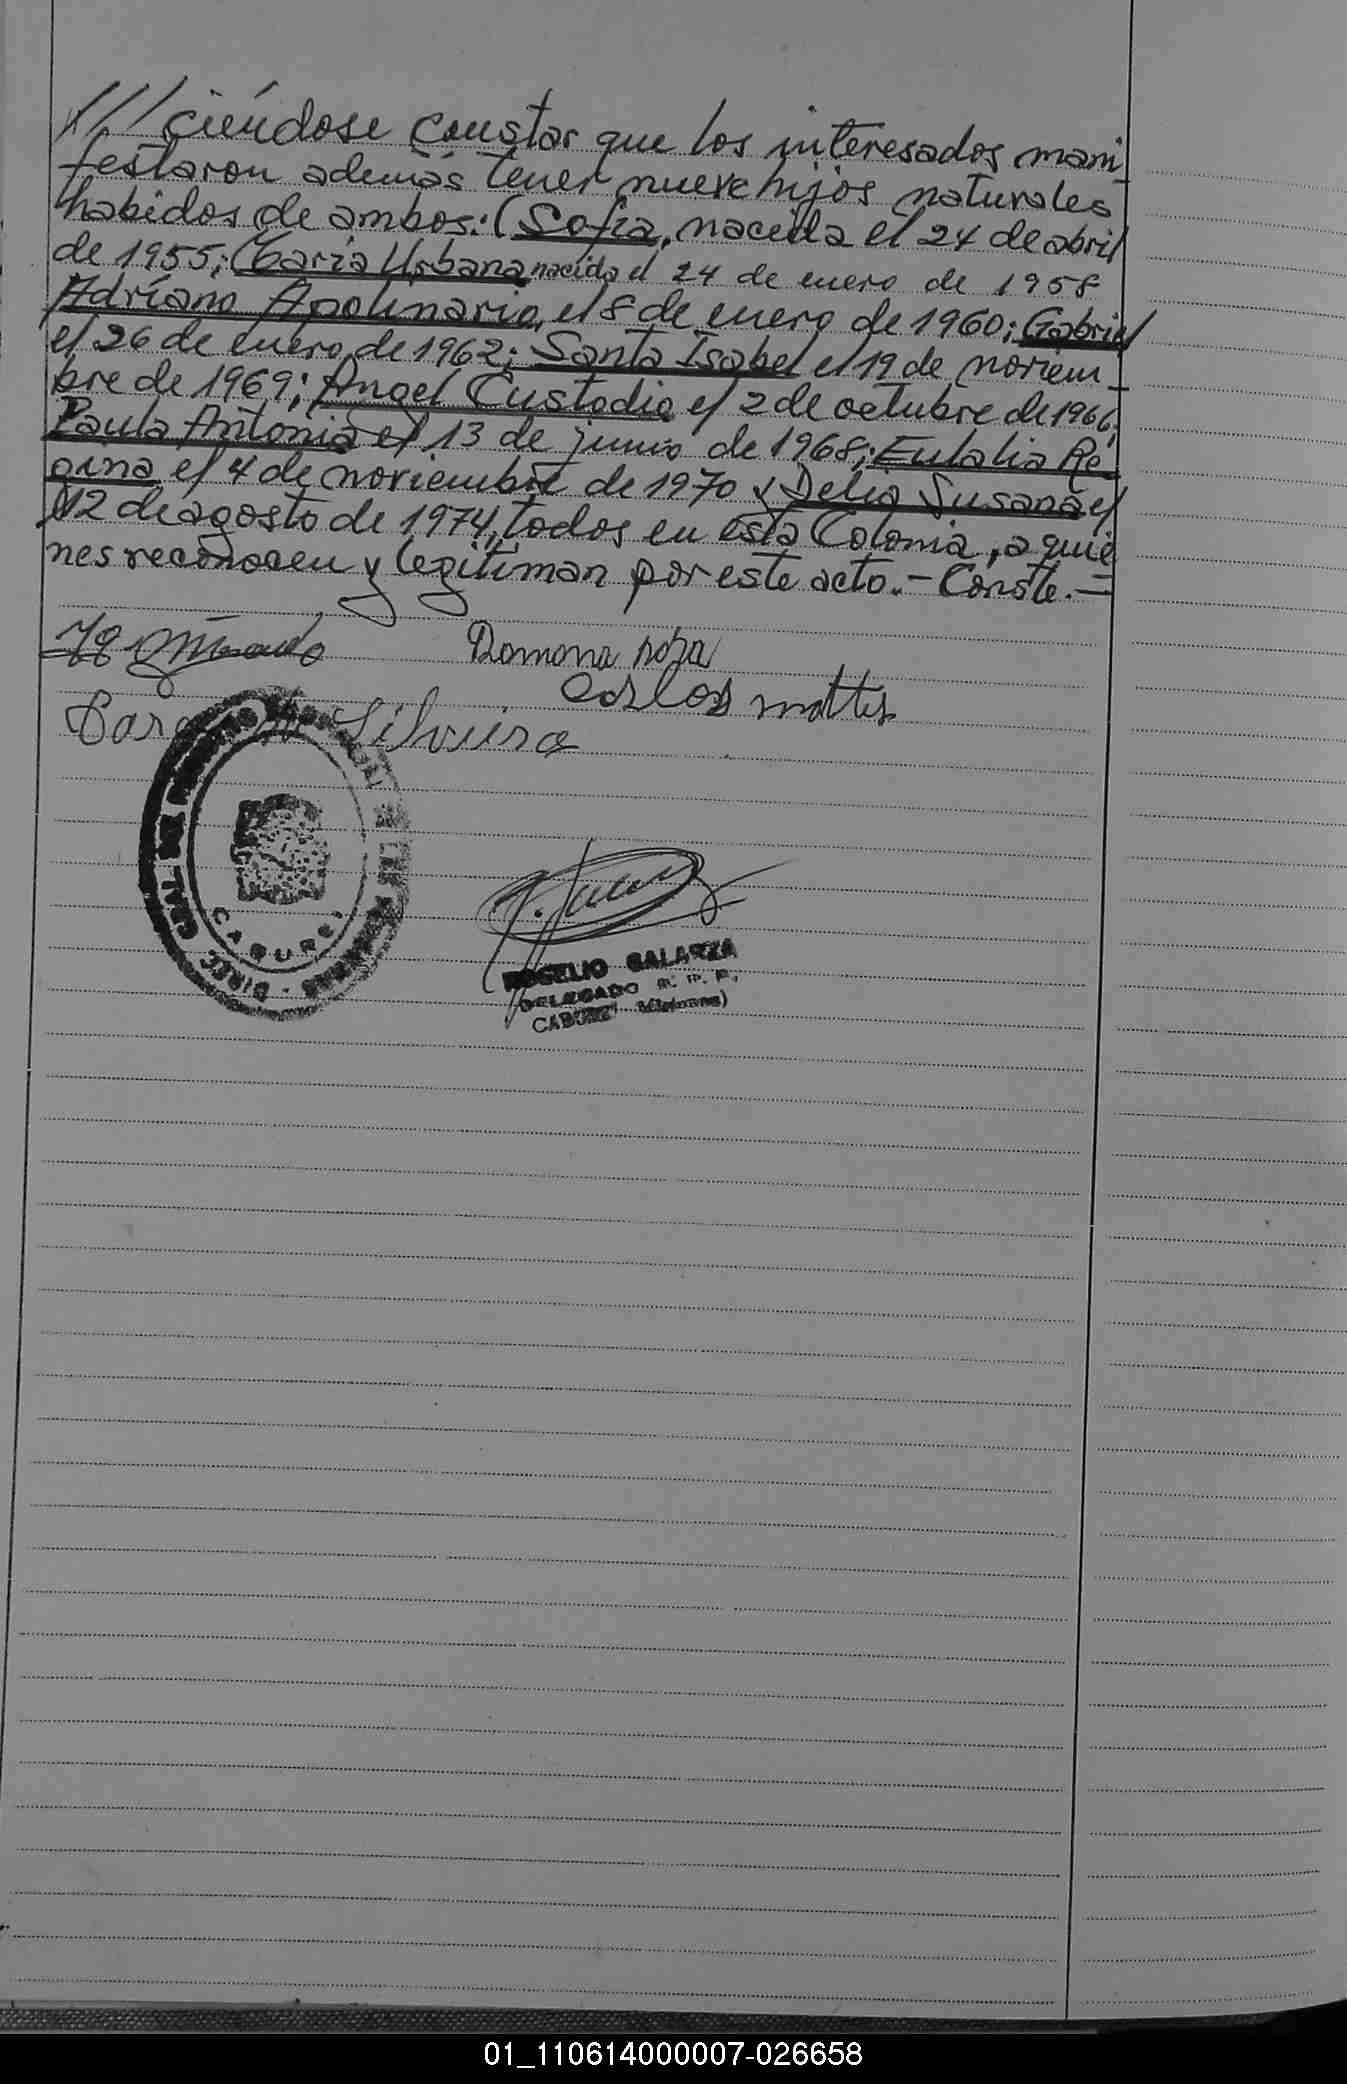 /// ciéndose constar que los interesados mani
festaron además tener nueve hijos naturales
habidos de ambos: (Sofía, nacida el 24 de abril
de 1955; María Urbana nacida el 24 de enero de 1958
Adriano Apolinario, el 8 de enero de 1960; Gabriel
el 26 de enero de 1962; Santa Isabel el 19 de noviem-
bre de 1969; Angel Custodio el 2 de octubre de 1966;
Paula Antonia el 13 de junio de 1968; Eulalia Re-
gina el 4 de noviembre de 1970 y Delia Susana el
12 de agosto de 1974, todos en esta Colonia, a quie
nes reconocen y legitiman por este acto.- Conste.-
Ramona
Carlos
Silveira
DIREC. GRAL. DE
DE LAS PERSONAS
CABUREI
ROGELIO GALARZA
DELEGADO R. P. P.
CABUREI (Misiones)
01_110614000007-026658